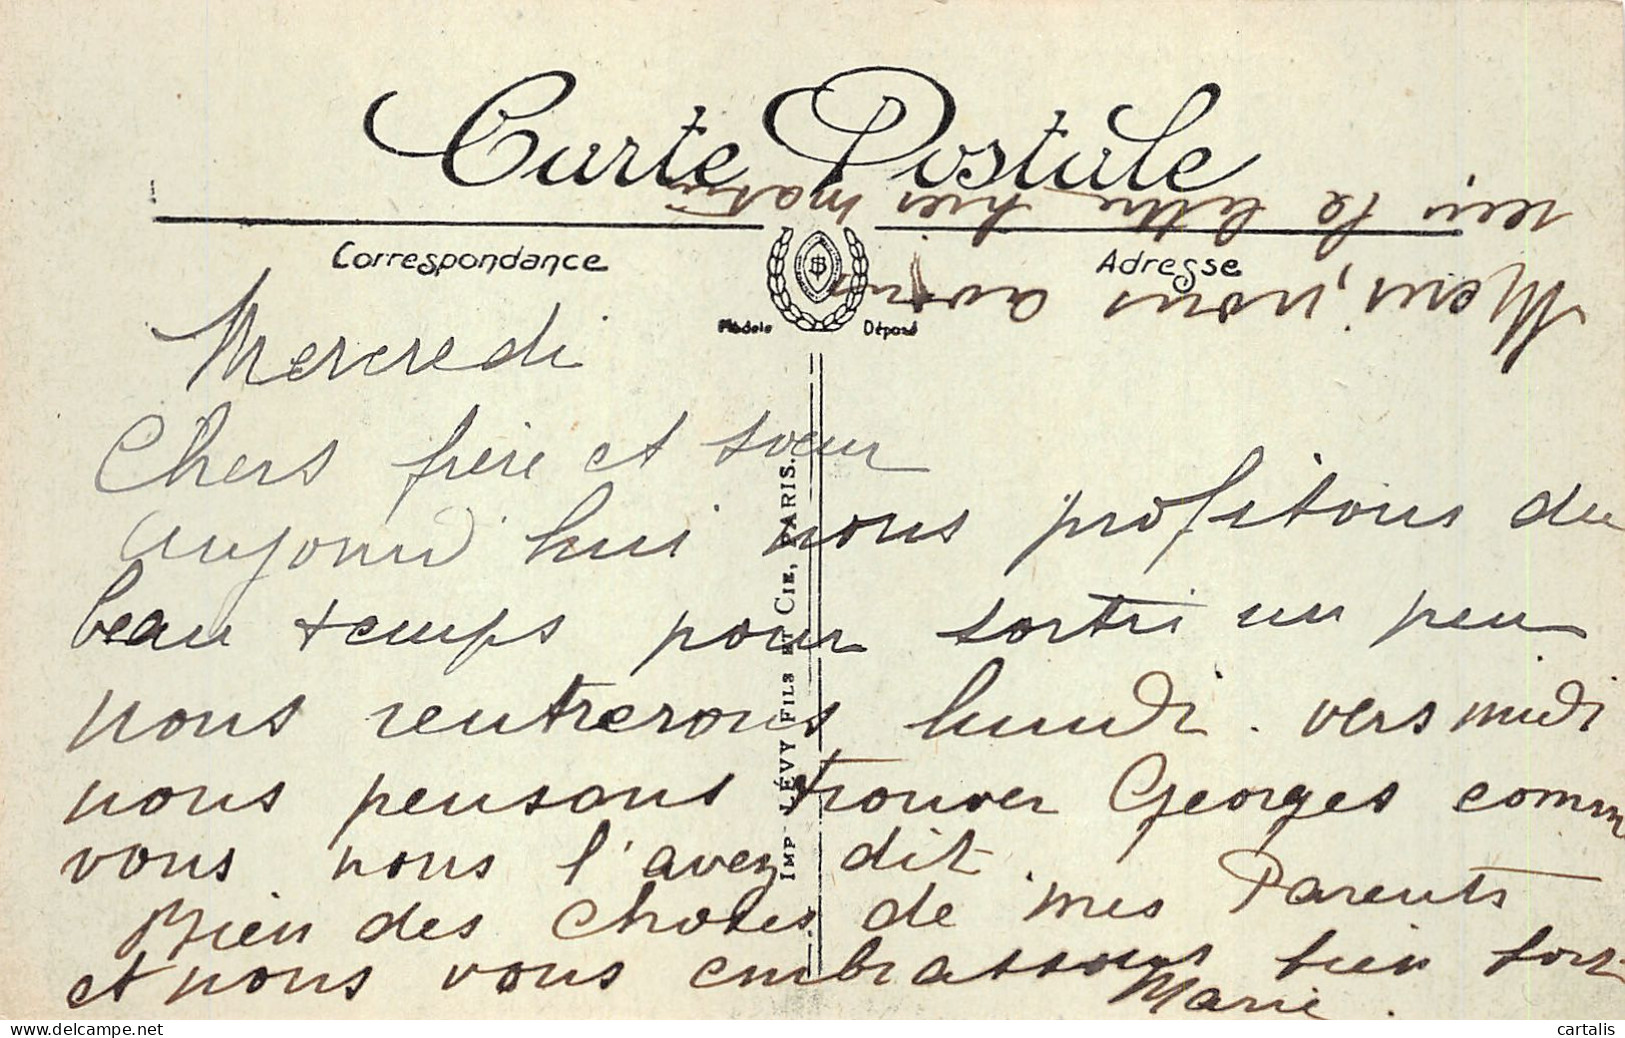 Carte Postale
Correspondance
Adresse
Modèle Déposé
Mercredi
Chers frère et sœur
aujourd'hui nous profitons du
beau temps pour sortri un peu
nous rentrerons lundi. vers midi
nous pensons trouver Georges comm
vous nous l'avez dit.
Bien des choses de mes Parents
et nous vous embrassons bien fort
Marie.
Merci, nous avons
reçu te lettre hier matin
IMP LÉVY FILS ET CIE, PARIS.
cartalis